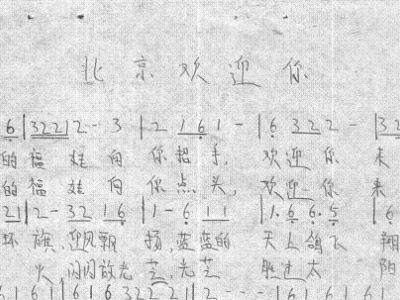 北京欢迎你
6 | 3221 2 - 3 | 2 1 6 1 - | 6 3 2 2 - | 32
的福娃向你招手, 欢迎你 来
的福娃向你点头, 欢迎你 来
21 | 2 - 32 16 | 1 - 6 11 | 1. 6 6. 5 | 6
环旗,迎风飘扬,蓝蓝的天上鸽飞翔
火闪闪放光芒,光芒胜过太阳
161 | 61 6322 | 2 - - - | 161 61 61